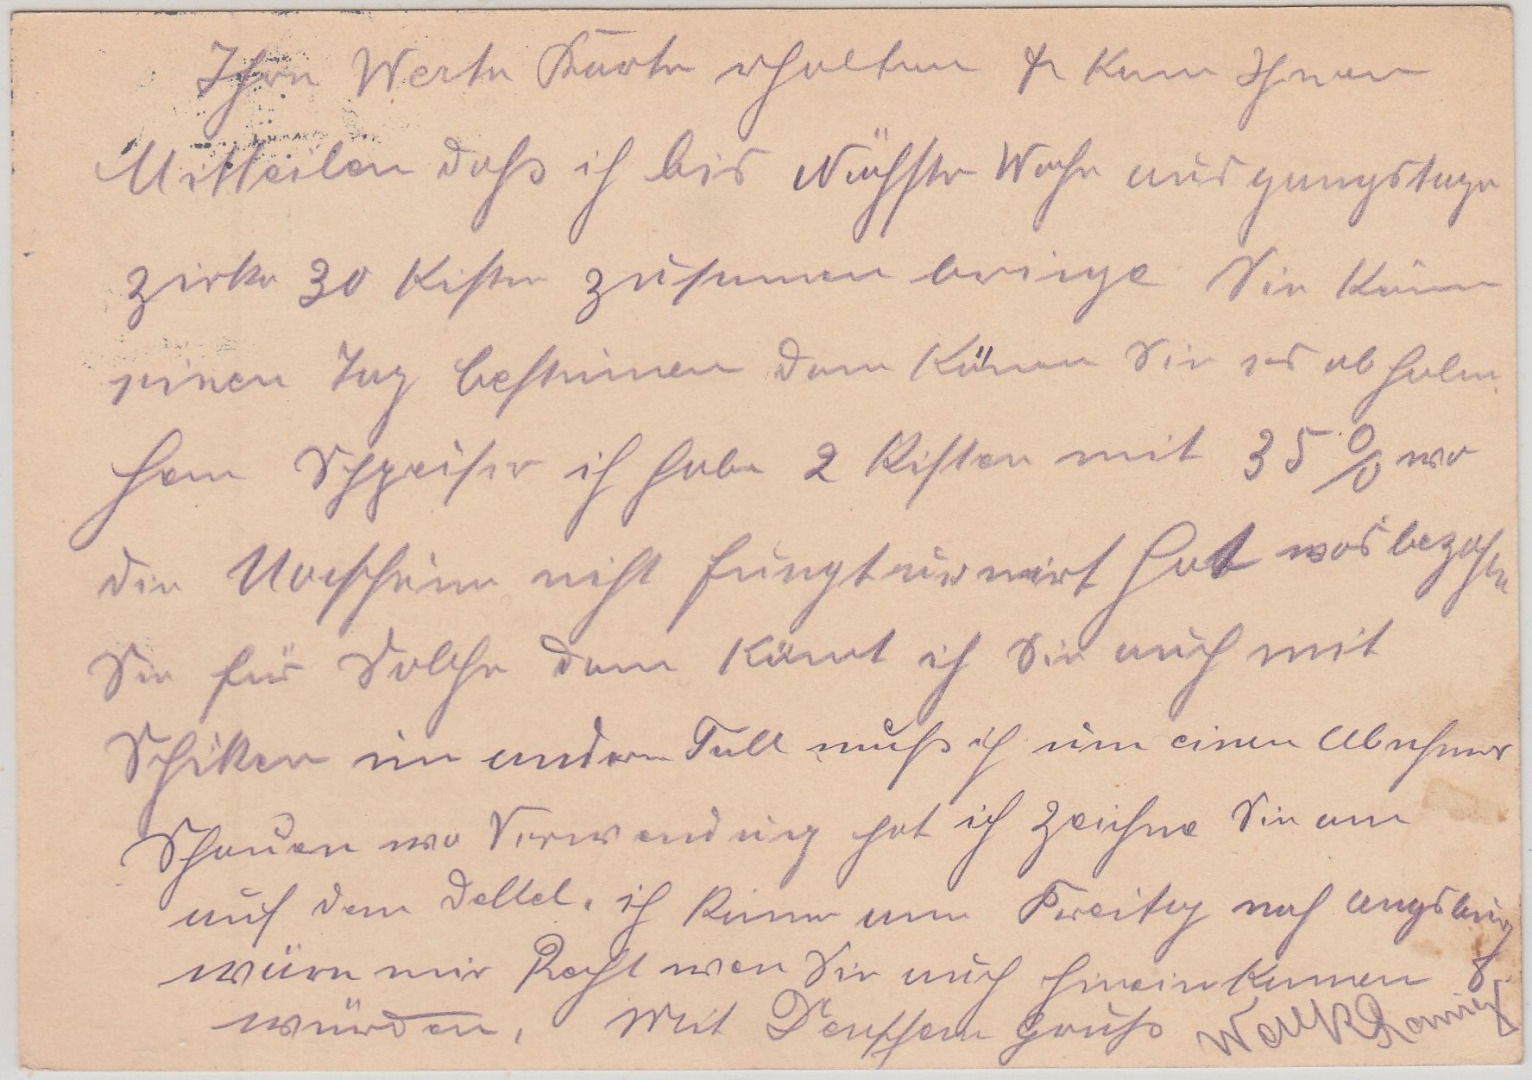 Ihre Werte Karte erhalten & kan Ihnen
Mitteilen daß ich bis Nächste Woche ausgangstage
zirka 30 Kisten zusamen bringe Sie könn
einen Tag bestimen dan könen Sie es ab holen.
Hern Schpeiser ich habe 2 Kisten mit 35 % wo
die Maschine nicht fungtuonirt hat was bezahle
Sie für Solche dan könt ich Sie auch mit
Schiken im andern Fall muß ich um einen Abnehmer
Schauen wo Verwendung hat ich zeichne Sie am
auf dem ich kome am Freitag nach Augsburg
würe mir Recht wen Sie auch hineinkomen
würden. Mit Deutschem Gruß